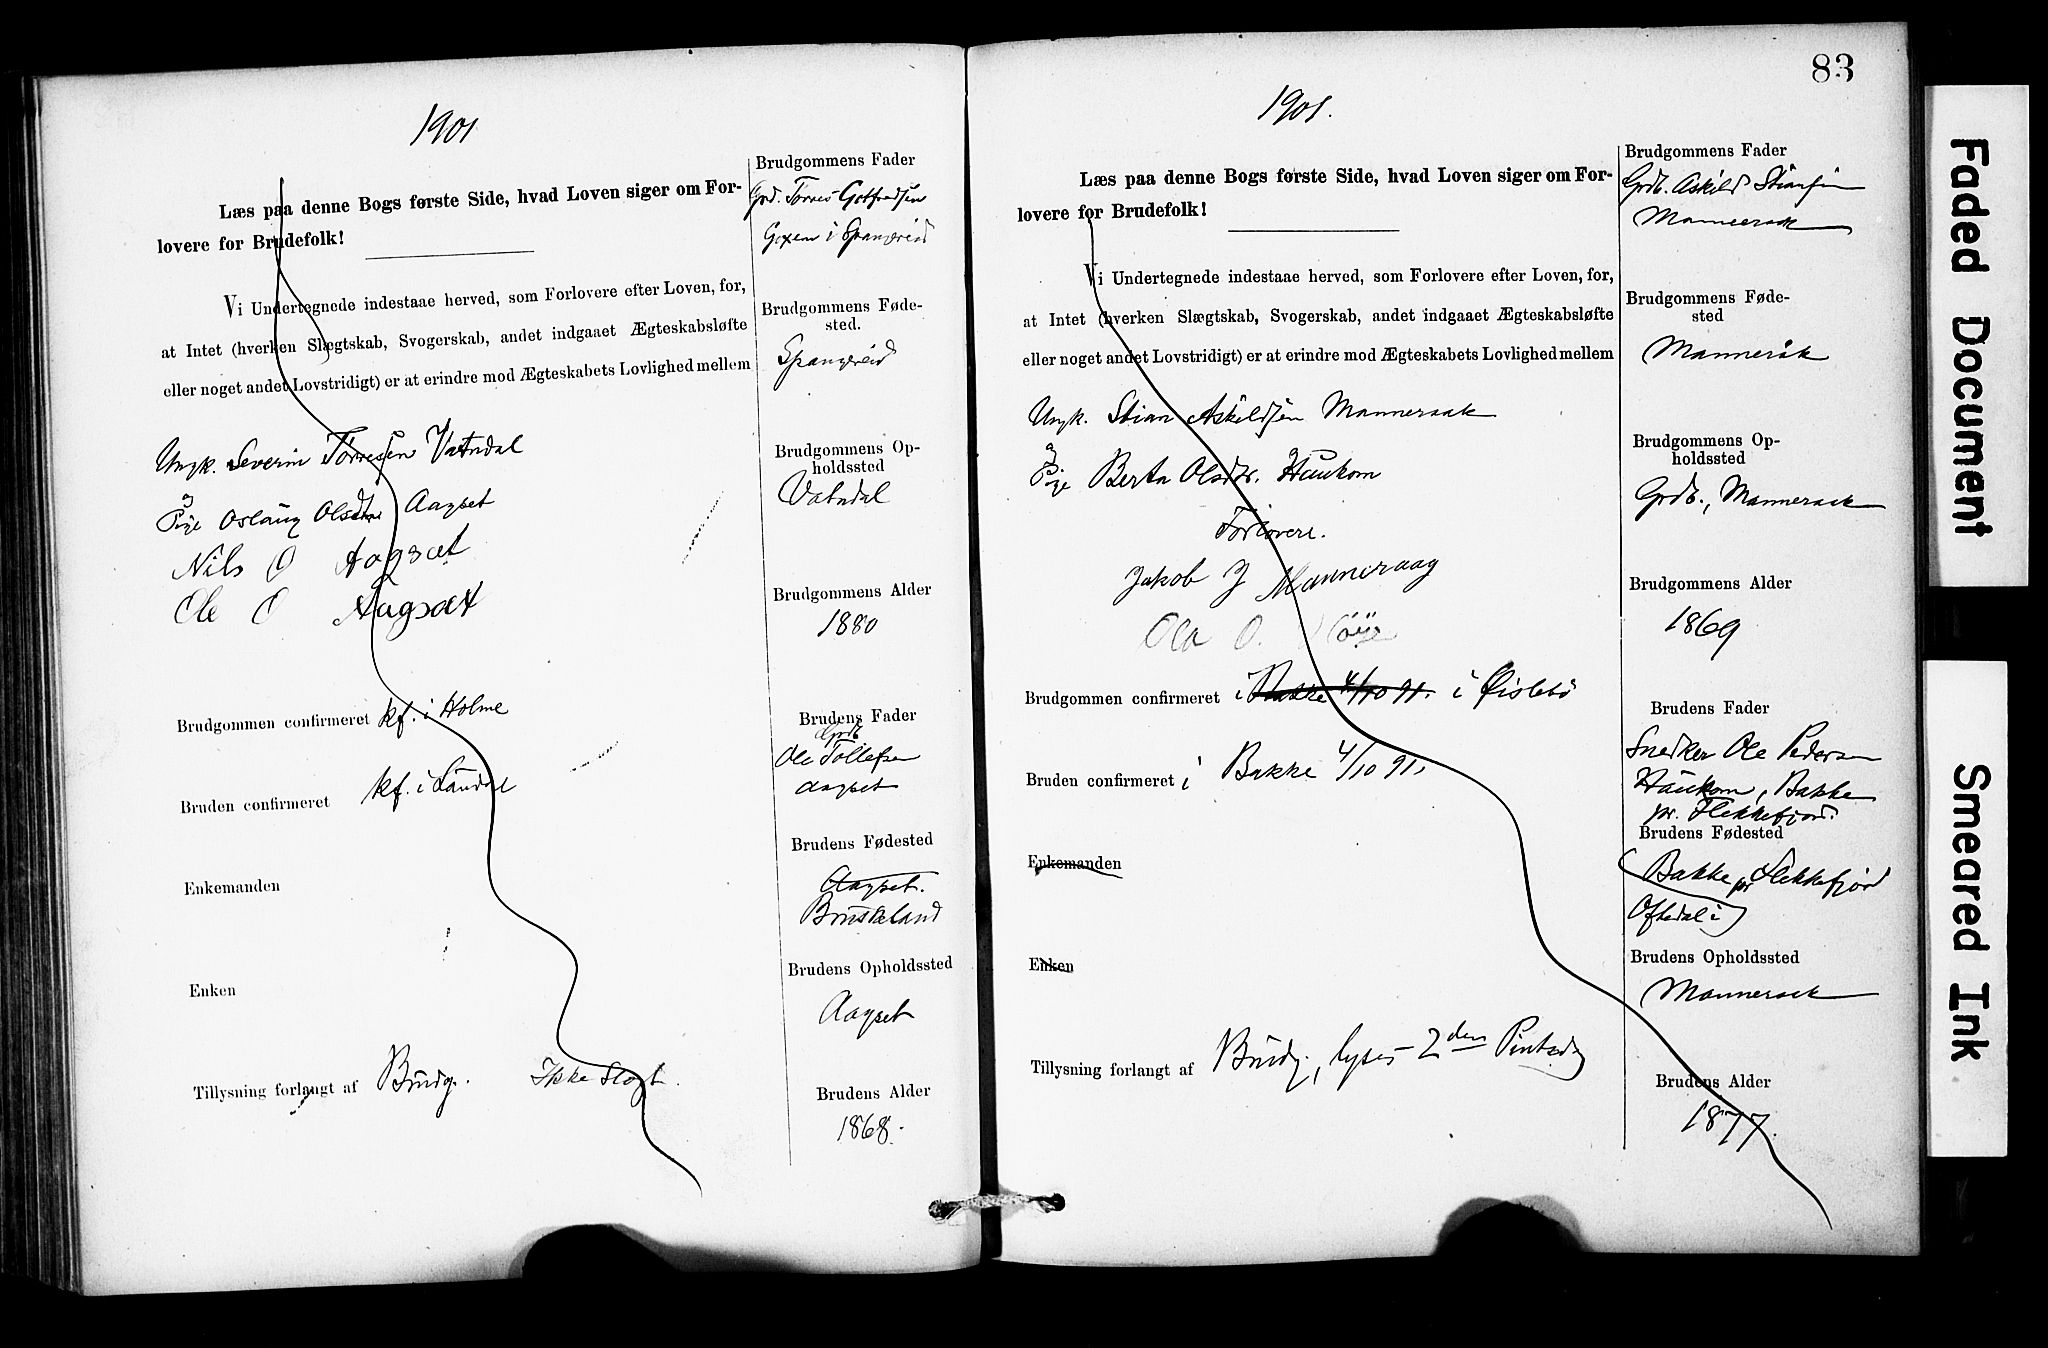 1901
Læs paa denne Bogs første Side, hvad Loven siger om For-
lovere for Brudefolk!
Vi Undertegnede indestaae herved, som Forlovere efter Loven, for,
at Intet (hverken Slægtskab, Svogerskab, andet indgaaet Ægteskabsløfte
eller noget andet Lovstridigt) er at erindre mod Ægteskabets Lovlighed mellem
Ungk. Severin Tørresen Vatndal
og
Pige Oslaug Olsdtr Aagset
Nils O Aagsæt
Ole O Aagsæt
Brudgommen confirmeret kf. i Holme
Bruden confirmeret kf. i Laudal
Enkemanden
Enken
Tillysning forlangt af Brudg. Ikke Slægt.
Brudgommens Fader
Grd. Tørres Gotfredsen
i Spangereid
Brudgommens Føde-
sted.
Spangereid
Brudgommens Op-
holdssted
Vatndal
Brudgommens Alder
1880
Brudens Fader
Grdb
Ole Tollefsen
Aagset
Brudens Fødested
Aagset.
Bruskeland
Brudens Opholdssted
Aagset
Brudens Alder
1868.
83
1901.
Læs paa denne Bogs første Side, hvad Loven siger om For-
lovere for Brudefolk!
Vi Undertegnede indestaae herved, som Forlovere efter Loven, for,
at Intet (hverken Slægtskab, Svogerskab, andet indgaaet Ægteskabsløfte
eller noget andet Lovstridigt) er at erindre mod Ægteskabets Lovlighed mellem
Ungk. Stian Askildsen Manneraak
og
Pige Berta Olsdtr. Haukom
Forlovere.
Jakob J Manneraag
Ola O. Høye
Brudgommen confirmeret i Bakke 4/10 91. i Øislebø
Bruden confirmeret i Bakke 4/10 91.
Enkemanden
Enken
Tillysning forlangt af Brudg., lyses 2den Pintsedag
Brudgommens Fader
Grdb. Askild Stiansen
Manneraak
Brudgommens Føde-
sted
Manneråk
Brudgommens Op-
holdssted
Grdb., Manneraak
Brudgommens Alder
1869
Brudens Fader
Snedker Ole Pedersen
Haukom, Bakke
pr. Flekkefjord.
Brudens Fødested
Bakke pr Flekkefjord
Oftedal i
Brudens Opholdssted
Manneraak
Brudens Alder
1877.
Faded Document
Smeared Ink